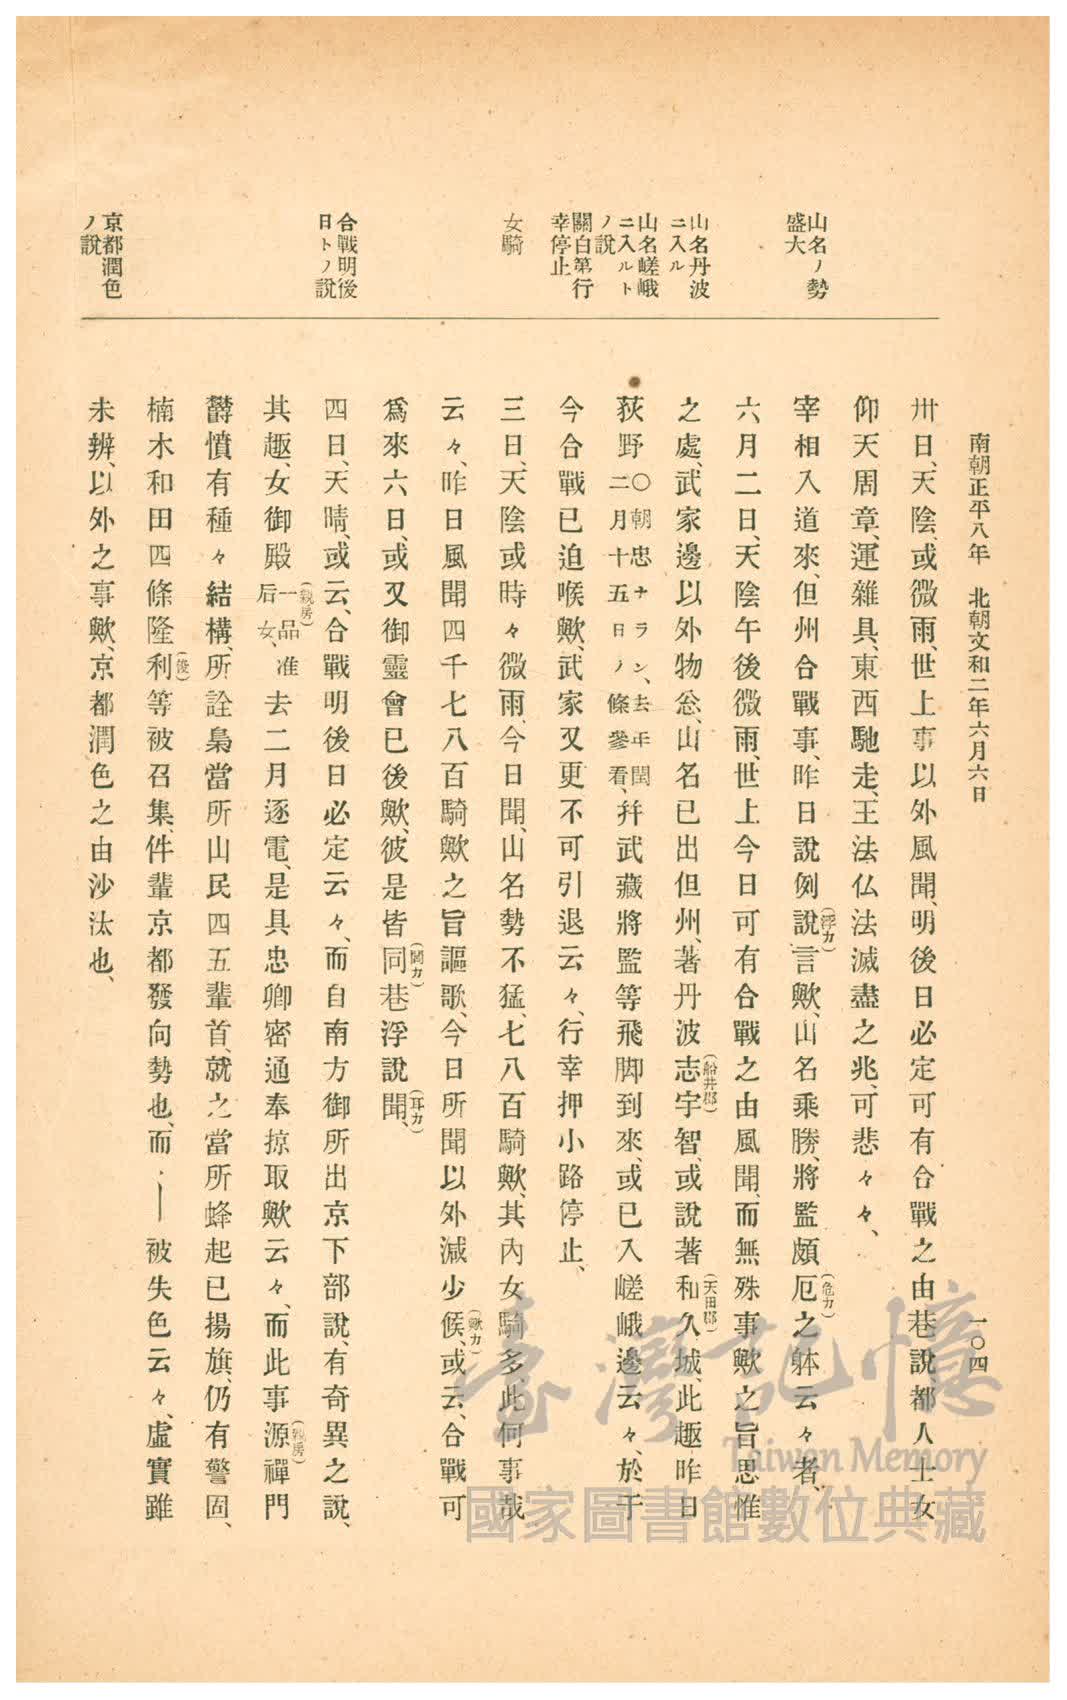 南朝正平八年　北朝文和二年六月六日
一〇四
山名ノ勢
盛大
山名丹波
ニ入ル
山名嵯峨
ニ入ルト
ノ説
關白第行
幸停止
女騎
合戰明後
日トノ説
京都潤色
ノ説
卅日、天陰、或微雨、世上事以外風聞、明後日必定可有合戰之由巷說、都人士女
仰天周章、運雜具、東西馳走、王法仏法滅盡之兆、可悲々々、
宰相入道來、但州合戰事、昨日說例說(浮カ)言歟、山名乘勝、將監頗厄(危カ)之躰云々者、
六月二日、天陰午後微雨、世上今日可有合戰之由風聞、而無殊事歟之旨思惟
之處、武家邊以外物忩、山名已出但州、著丹波志宇智(船井郡)、或說著和久城(天田郡)、此趣昨日
荻野〇朝忠ナラン、去年閏二月十五日ノ條參看、幷武藏將監等飛脚到來、或已入嵯峨邊云々、於于
今合戰已迫喉歟、武家又更不可引退云々、行幸押小路停止、
三日、天陰或時々微雨、今日聞、山名勢不猛、七八百騎歟、其內女騎多、此何事哉
云々、昨日風聞四千七八百騎歟之旨謳歌、今日所聞以外減少候(歟カ)、或云、合戰可
爲來六日、或又御靈會已後歟、彼是皆同(閭カ)巷浮說聞(耳カ)、
四日、天晴、或云、合戰明後日必定云々、而自南方御所出京下部說、有奇異之說、
其趣、女御殿(親房)一品准后女、去二月逐電、是具忠卿密通奉掠取歟云々、而此事源(親房)禪門
欝憤有種々結構、所詮梟當所山民四五輩首、就之當所蜂起已揚旗、仍有警固、
楠木和田四條隆利(俊)等被召集、件輩京都發向勢也、而・｜被失色云々、虛實雖
未辨、以外之事歟、京都潤色之由沙汰也、
臺灣記憶
Taiwan Memory
國家圖書館數位典藏